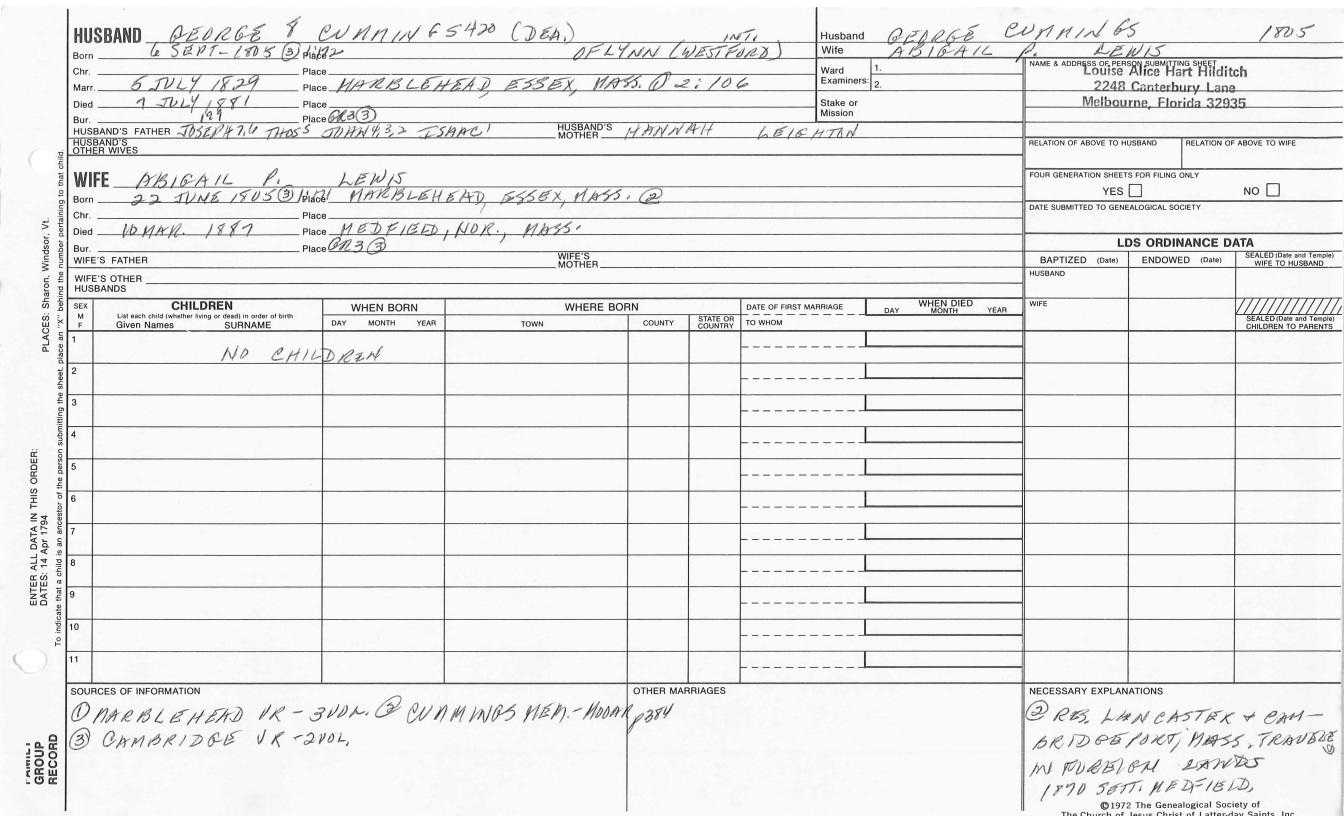 HUSBAND GEORGE 8 CUMMINGS 420 (DEA.) INT.
Born 6 SEPT-1805 (3) Place OF LYNN (WESTFORD)
Chr. Place
Marr. 5 JULY 1829 Place MARBLEHEAD, ESSEX, MASS. (1) 2:106
Died 7 JULY 1881 Place
Bur. Place GR3 (3)
HUSBAND'S FATHER JOSEPH 7,6 THOS 5 JOHN 4,3,2 ISAAC 1 HUSBAND'S MOTHER HANNAH LEIGHTON
HUSBAND'S OTHER WIVES
Husband GEORGE CUMMINGS 1805
Wife ABIGAIL P. LEWIS
Ward Examiners: 1.
2.
Stake or Mission
NAME & ADDRESS OF PERSON SUBMITTING SHEET
Louise Alice Hart Hilditch
2248 Canterbury Lane
Melbourne, Florida 32935
RELATION OF ABOVE TO HUSBAND RELATION OF ABOVE TO WIFE
FOUR GENERATION SHEETS FOR FILING ONLY
YES NO
DATE SUBMITTED TO GENEALOGICAL SOCIETY
WIFE ABIGAIL P. LEWIS
Born 22 JUNE 1805 (3) Place MARBLEHEAD, ESSEX, MASS. (2)
Chr. Place
Died 10 MAR. 1887 Place MEDFIELD, NOR., MASS.
Bur. Place GR3 (3)
WIFE'S FATHER WIFE'S MOTHER
WIFE'S OTHER HUSBANDS
LDS ORDINANCE DATA
BAPTIZED (Date) ENDOWED (Date) SEALED (Date and Temple) WIFE TO HUSBAND
HUSBAND
WIFE
SEALED (Date and Temple) CHILDREN TO PARENTS
SEX M F
CHILDREN
List each child (whether living or dead) in order of birth
Given Names SURNAME
WHEN BORN
DAY MONTH YEAR
WHERE BORN
TOWN COUNTY STATE OR COUNTRY
DATE OF FIRST MARRIAGE
TO WHOM
WHEN DIED
DAY MONTH YEAR
1 NO CHILDREN
2
3
4
5
6
7
8
9
10
11
SOURCES OF INFORMATION
(1) MARBLEHEAD VR - 3VOL. (2) CUMMINGS MEM. - MOOAR p384
(3) CAMBRIDGE VR - 2VOL.
OTHER MARRIAGES
NECESSARY EXPLANATIONS
(2) RES. LANCASTER + CAM-
BRIDGEPORT, MASS. TRAVELED
IN FOREIGN LANDS
1870 SETT. MEDFIELD.
©1972 The Genealogical Society of
The Church of Jesus Christ of Latter-day Saints, Inc.
ENTER ALL DATA IN THIS ORDER:
DATES: 14 Apr 1794 PLACES: Sharon, Windsor, Vt.
To indicate that a child is an ancestor of the person submitting the sheet, place an "X" behind the number pertaining to that child.
FAMILY GROUP RECORD